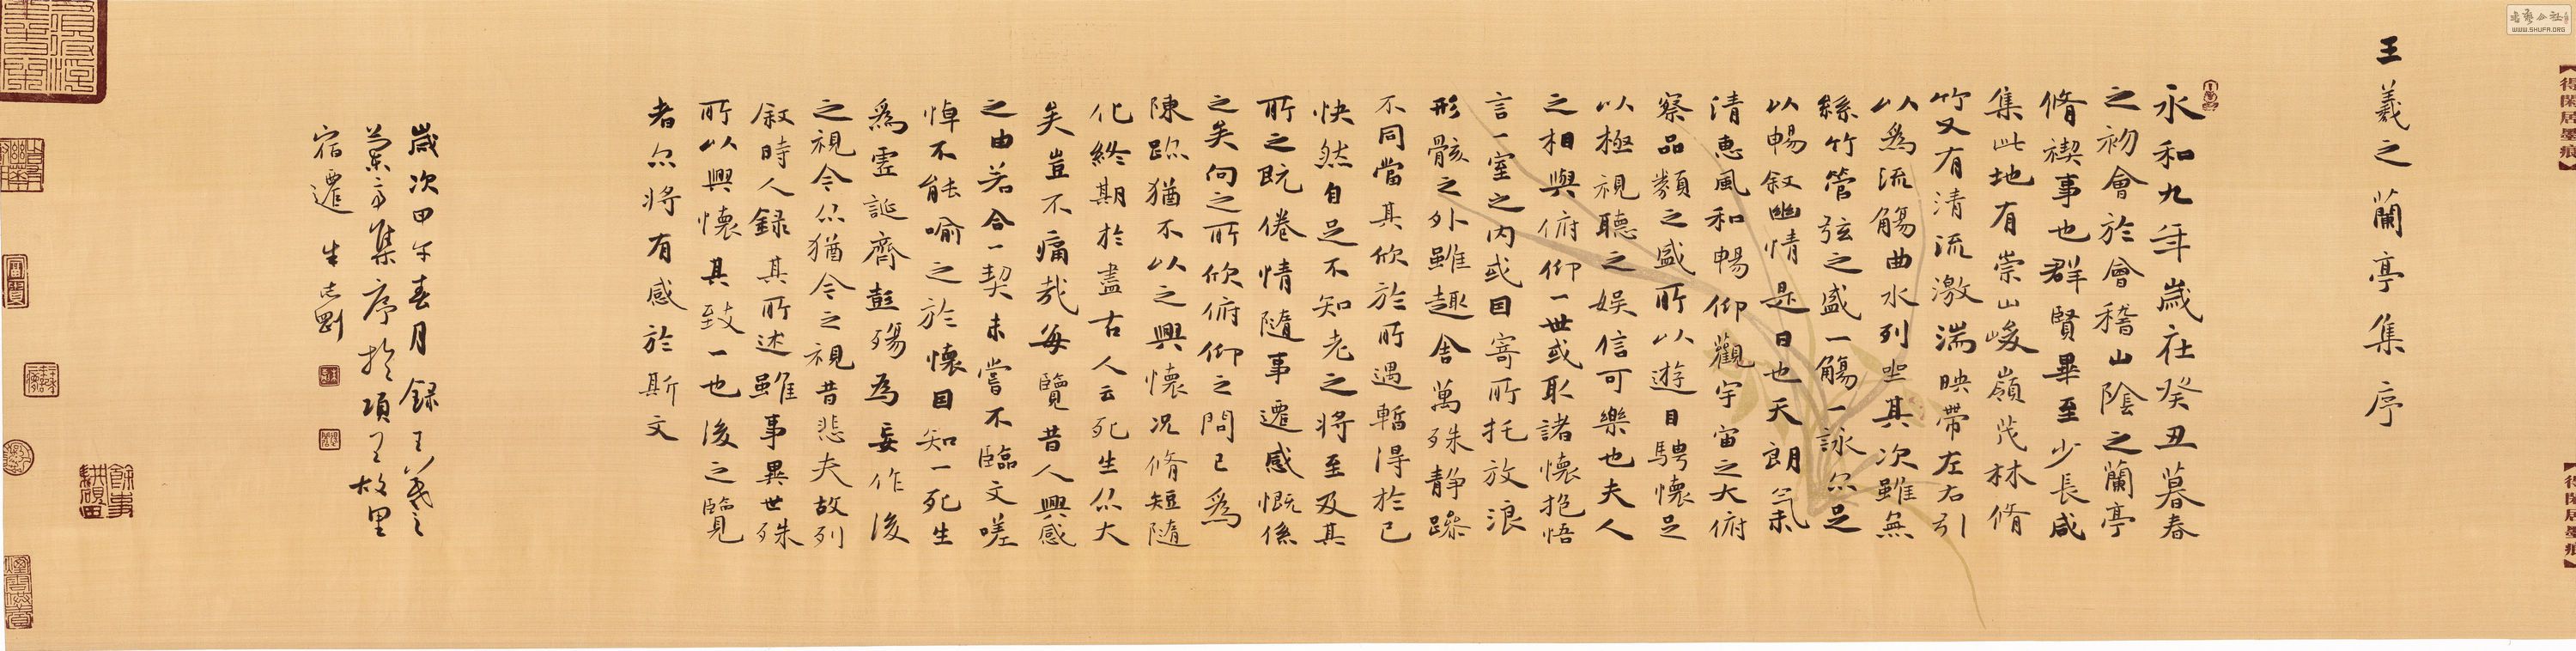 王羲之蘭亭集序
永和九年歲在癸丑暮春
之初會於會稽山陰之蘭亭
脩禊事也群賢畢至少長咸
集此地有崇山峻嶺茂林脩
竹又有清流激湍映帶左右引
以為流觴曲水列坐其次雖無
絲竹管弦之盛一觴一詠亦足
以暢叙幽情是日也天朗氣
清惠風和暢仰觀宇宙之大俯
察品類之盛所以遊目騁懷足
以極視聽之娱信可樂也夫人
之相與俯仰一世或取諸懷抱悟
言一室之内或因寄所托放浪
形骸之外雖趣舍萬殊静躁
不同當其欣於所遇暫得於己
快然自足不知老之將至及其
所之既倦情隨事遷感慨係
之矣向之所欣俯仰之間已為
陳迹猶不以之興懷况脩短隨
化終期於盡古人云死生亦大
矣豈不痛哉每覽昔人興感
之由若合一契未嘗不臨文嗟
悼不能喻之於懷固知一死生
為虚誕齊彭殤為妄作後
之視今亦猶今之視昔悲夫故列
叙時人録其所述雖事異世殊
所以興懷其致一也後之覽
者亦将有感於斯文
歲次甲午春月録王羲之
蘭亭集序於項王故里
宿遷
得閑居墨痕
得閑居墨痕
WWW.SHUFA.ORG